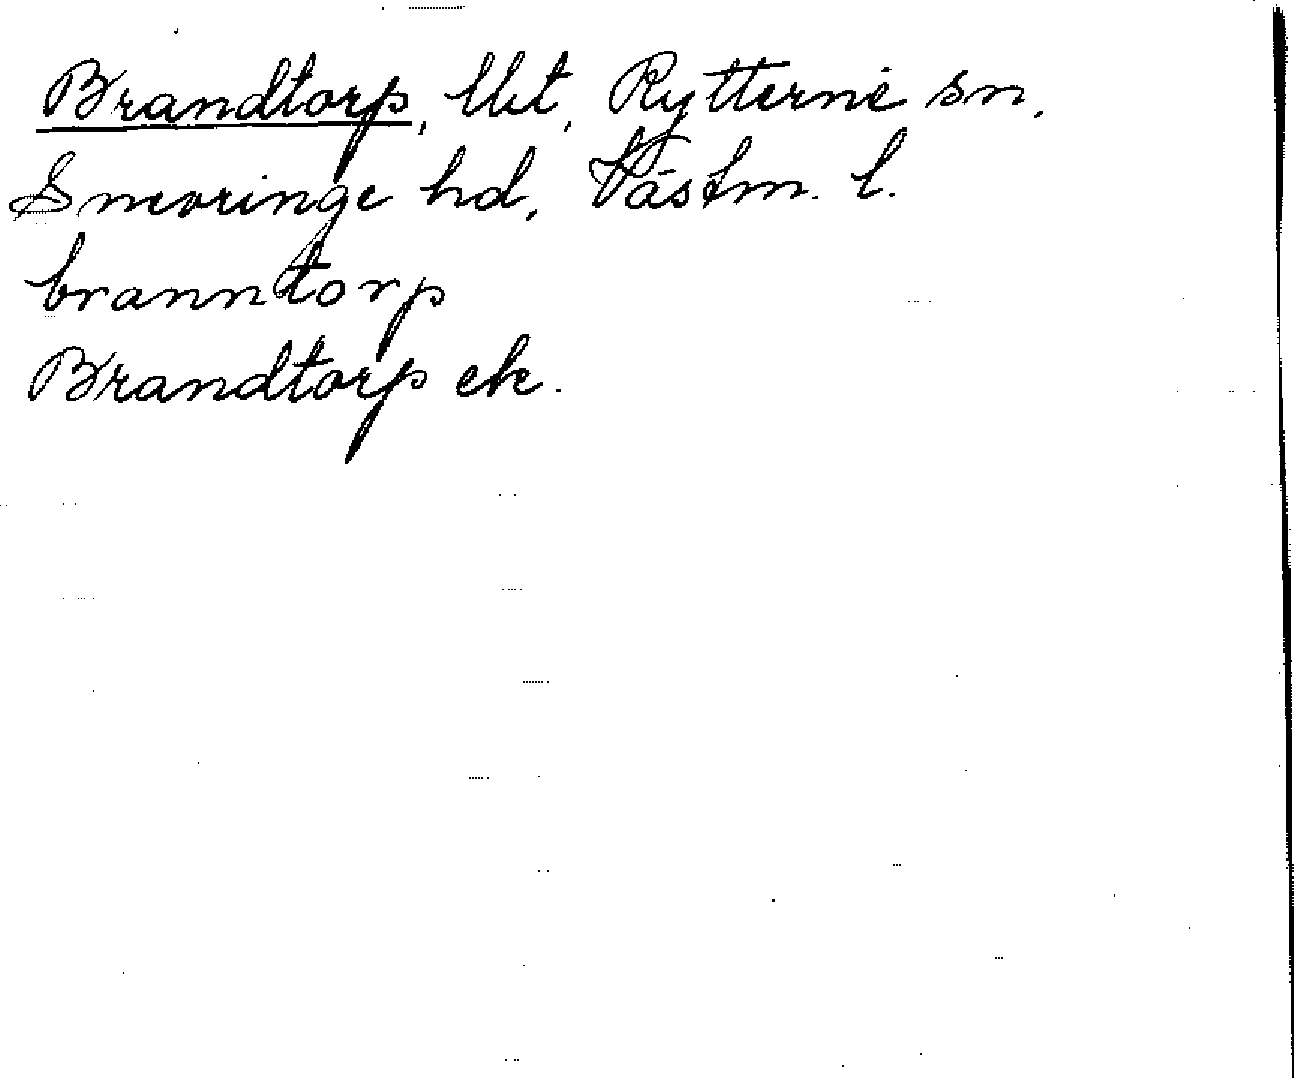 Brandtorp, lht, Rytterne sn,
Snevringe hd, Västm. l.
branntorp
Brandtorp ek.